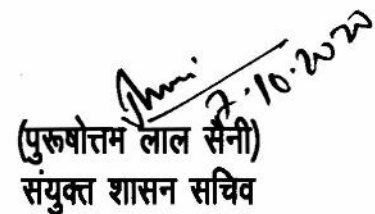 7.10.2020
(पुरूषोत्तम लाल सैनी)
संयुक्त शासन सचिव